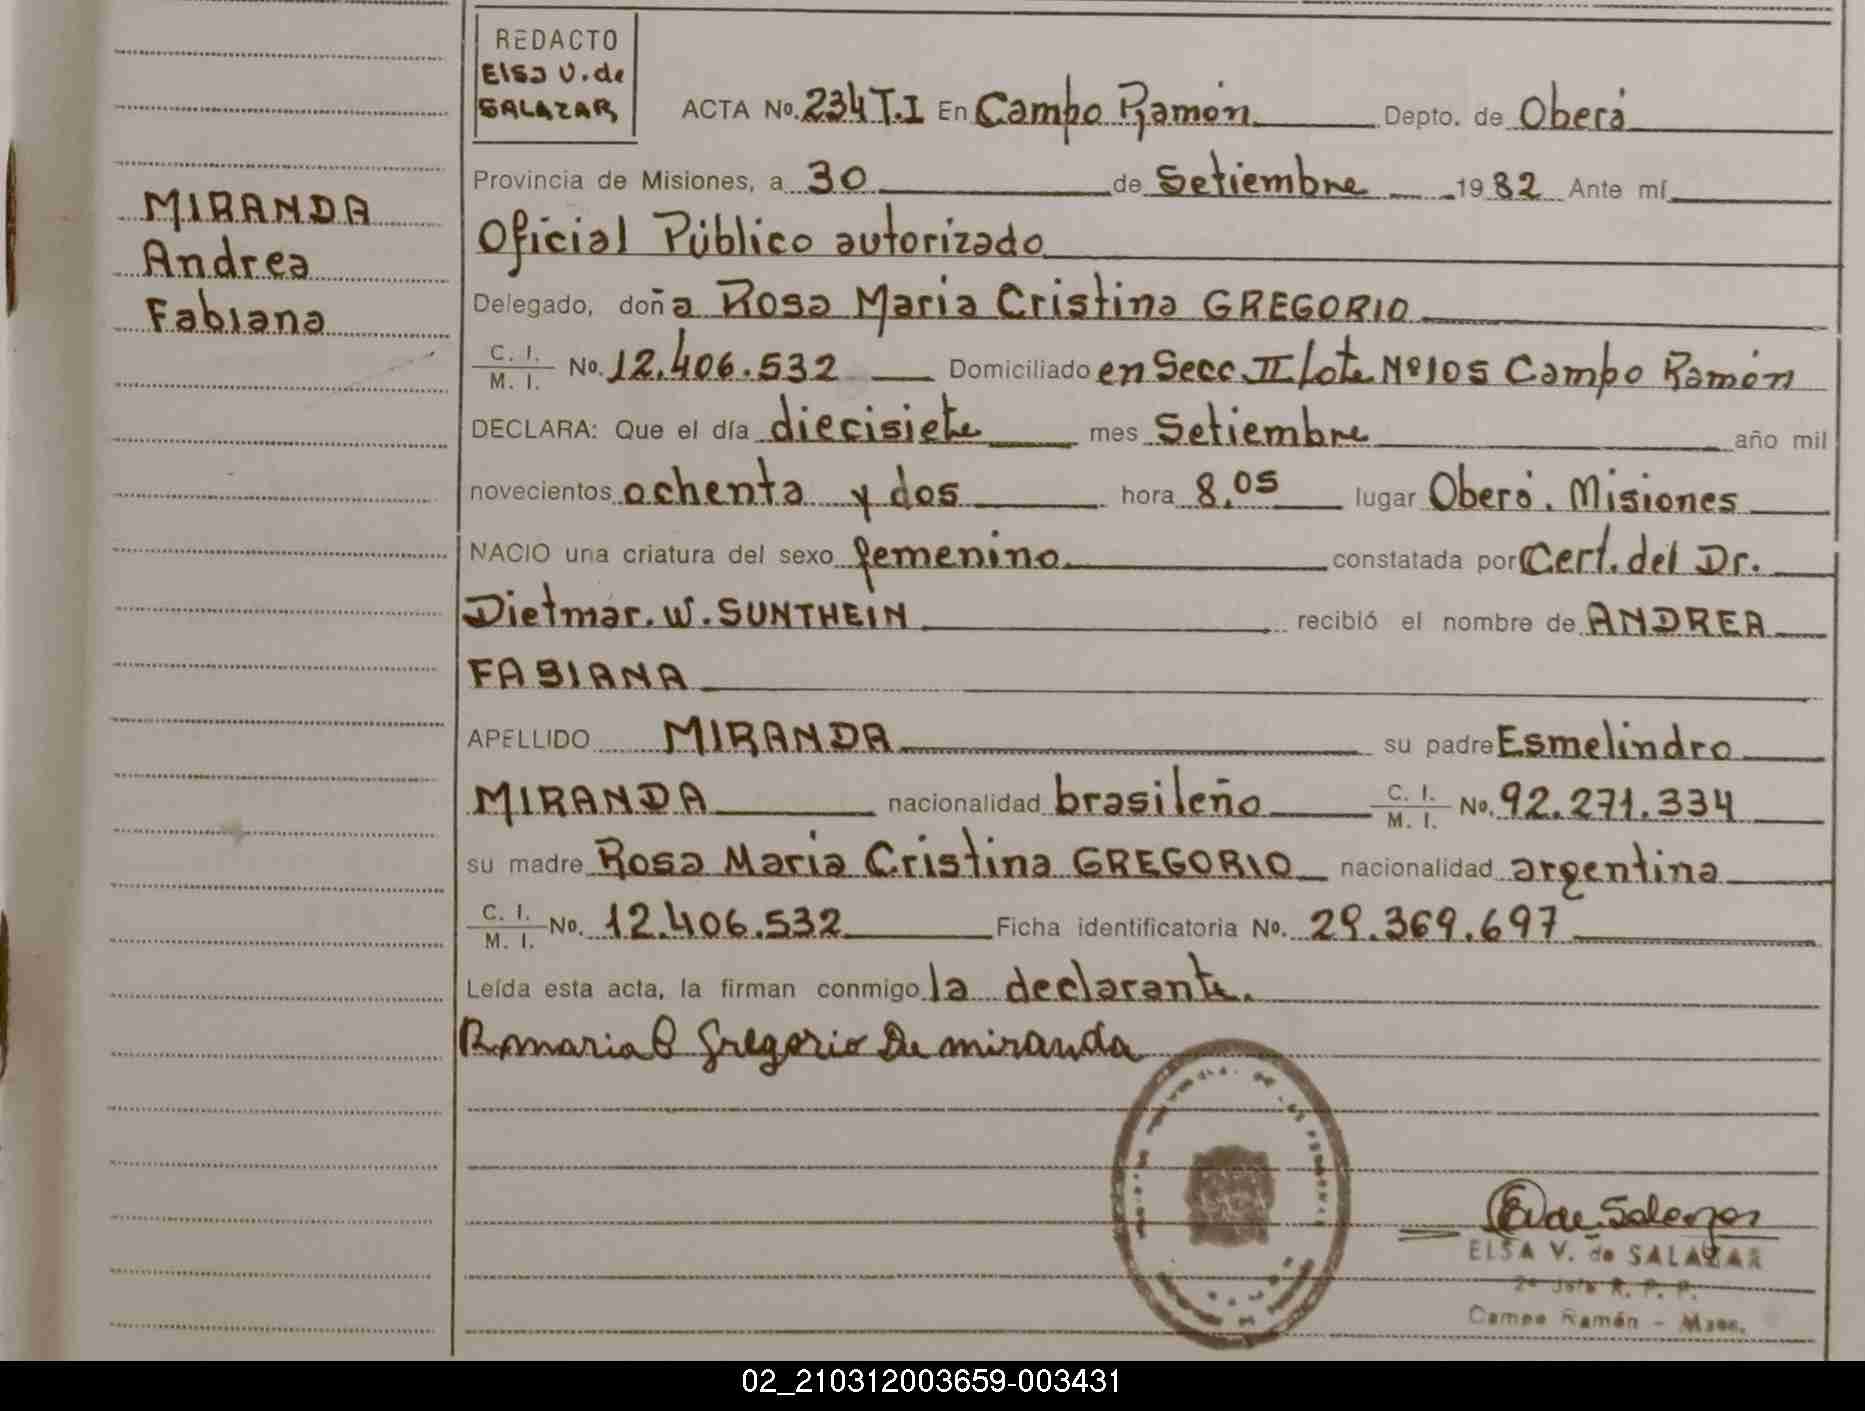 REDACTO
Elsa V. de
SALAZAR
ACTA No. 234 T.I En Campo Ramón Depto. de Oberá
Provincia de Misiones, a 30 de Setiembre 1982 Ante mí
Oficial Público autorizado
Delegado, doña Rosa Maria Cristina GREGORIO
C. I.
M. I. No. 12.406.532 Domiciliado en Secc II Lote Nº 105 Campo Ramón
DECLARA: Que el día diecisiete mes Setiembre año mil
novecientos ochenta y dos hora 8,05 lugar Oberá. Misiones
NACIO una criatura del sexo femenino constatada por Cert. del Dr.
Dietmar. W. SUNTHEIN recibió el nombre de ANDREA
FABIANA
APELLIDO MIRANDA su padre Esmelindro
MIRANDA nacionalidad brasileño C. I. M. I. No. 92.271.334
su madre Rosa Maria Cristina GREGORIO nacionalidad argentina
C. I.
M. I. No. 12.406.532 Ficha identificatoria No. 29.369.697
Leída esta acta, la firman conmigo la declarante.
R. maria C Gregorio De miranda
MIRANDA
Andrea
Fabiana
E V de Salazar
ELSA V. de SALAZAR
2ª Jefe R. P. P.
Campo Ramón - Mnes.
02_210312003659-003431